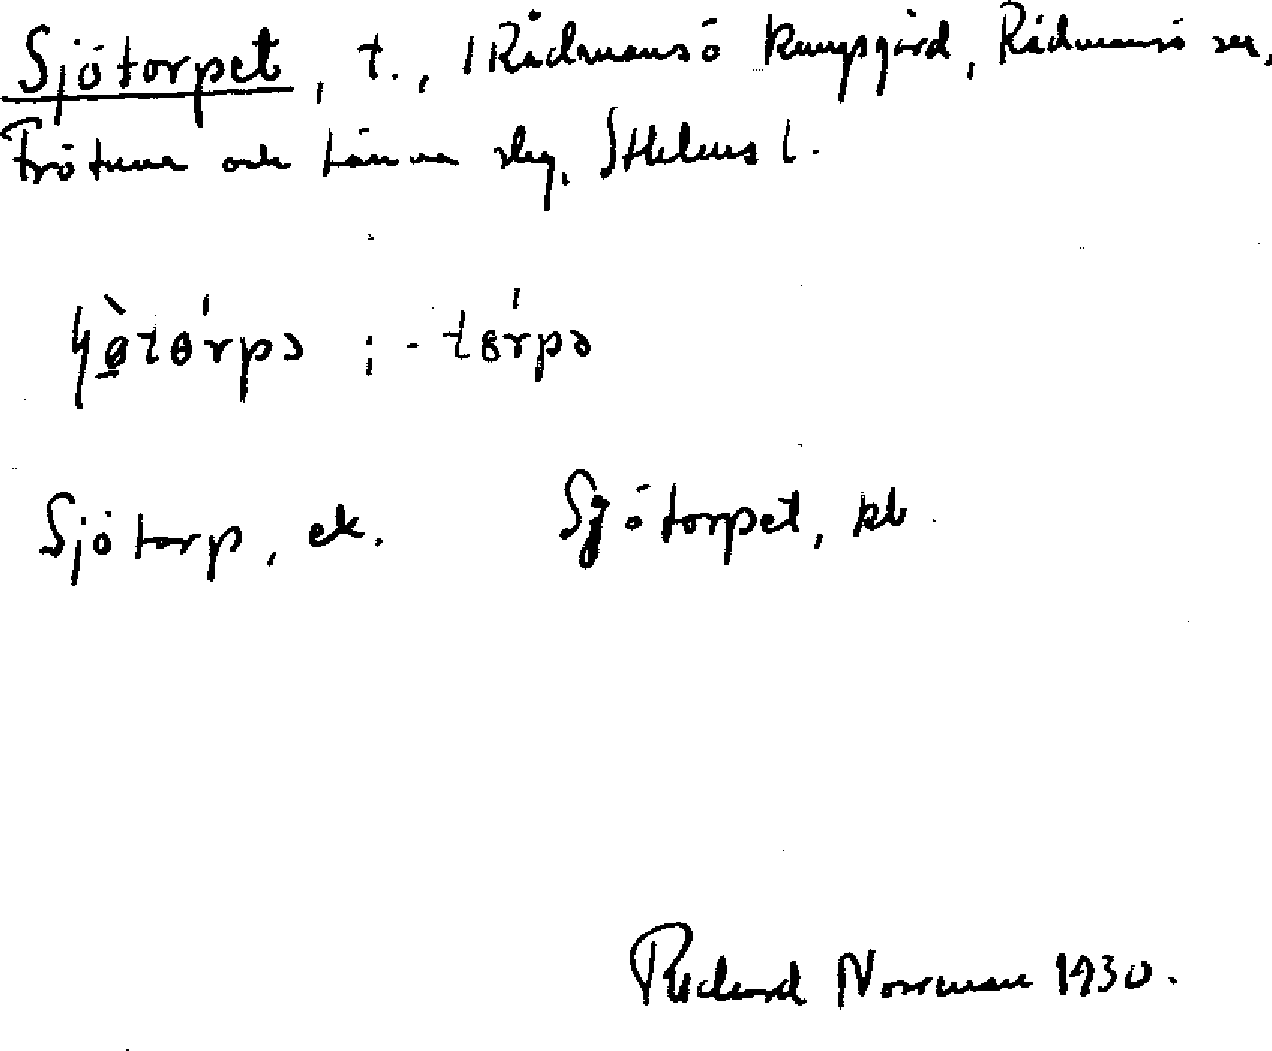 Sjötorpet, t., / Rådmansö kungsgård, Rådmansö sn,
Frötuna och Länna slg, Sthlms l.
-torpə
Sjötorp, ek. Sjötorpet, kb.
Rickard Norrman 1930.